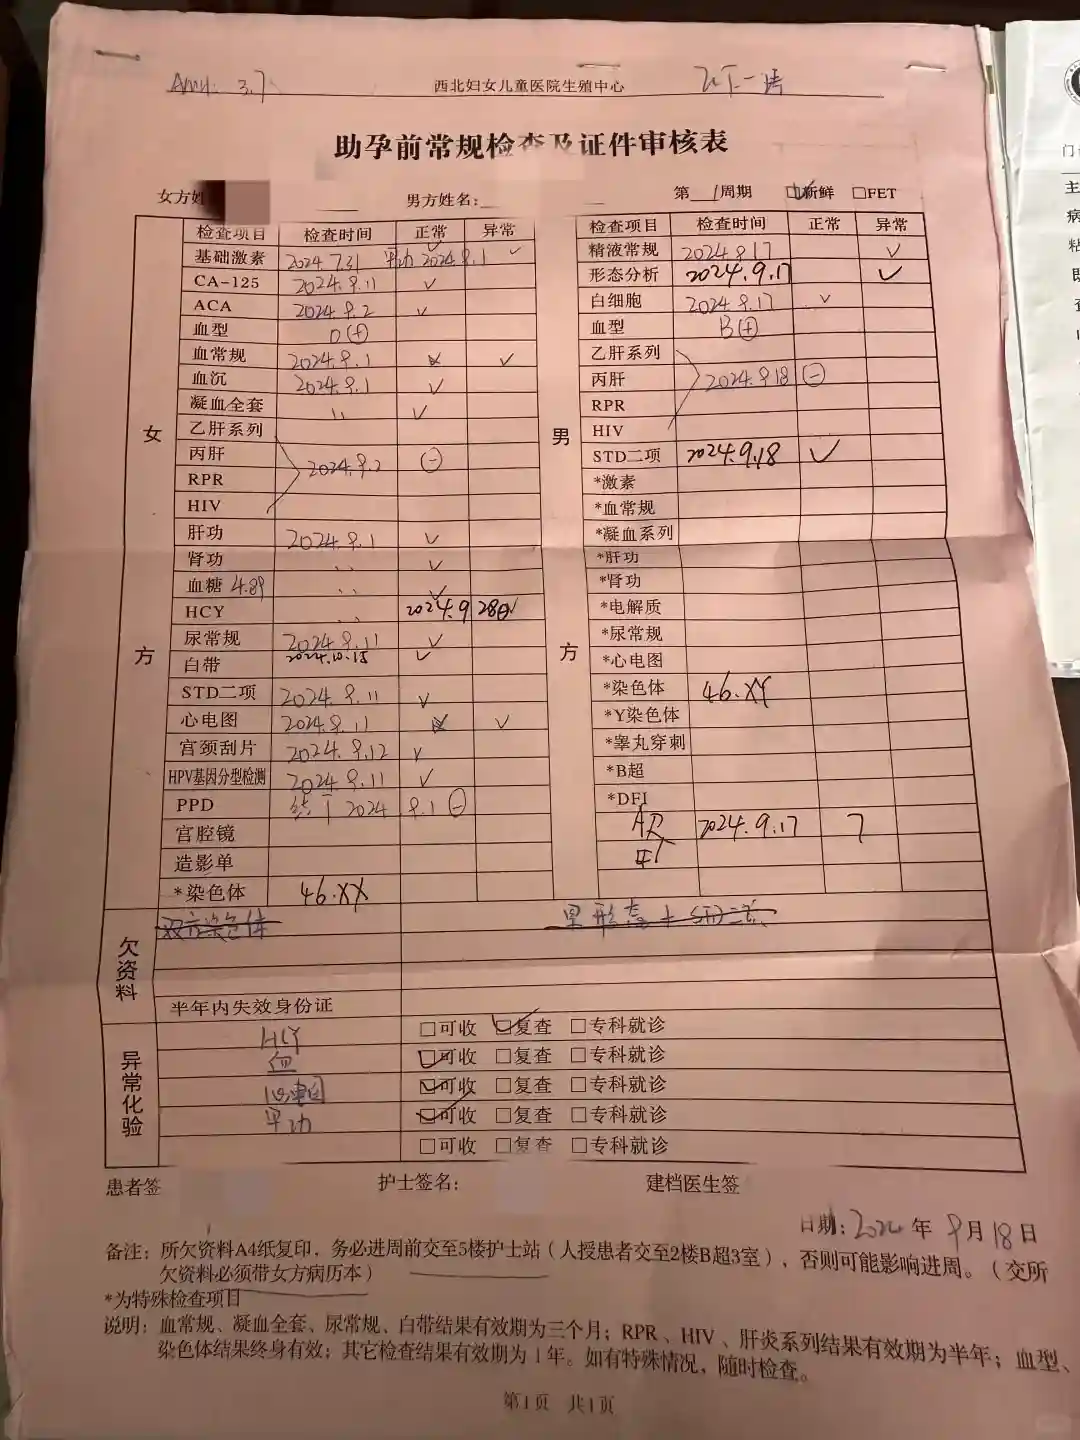 AMH: 3.7 西北妇女儿童医院生殖中心
助孕前常规检查及证件审核表
女方姓 男方姓名: 第 1 周期 ☑新鲜 □FET
检查项目 检查时间 正常 异常
基础激素 2024.7.31 甲功 2024.9.1 ✓
CA-125 2024.9.11 ✓
ACA 2024.9.2 ✓
血型 O(+)
血常规 2024.9.1 ✓
血沉 2024.9.1 ✓
凝血全套 〃 ✓
女
乙肝系列
丙肝 2024.9.2 (-)
RPR
HIV
肝功 2024.9.1 ✓
肾功 〃 ✓
血糖 4.89 〃 ✓
HCY 〃 2024.9 28日✓
方
尿常规 2024.9.11 ✓
白带 2024.10.15 ✓
STD二项 2024.9.11 ✓
心电图 2024.9.11 ✓
宫颈刮片 2024.9.12 ✓
HPV基因分型检测 2024.9.11 ✓
PPD 结 2024 9.1 (-)
宫腔镜
造影单
*染色体 46.XX
检查项目 检查时间 正常 异常
精液常规 2024.9.17 ✓
形态分析 2024.9.17 ✓
白细胞 2024.9.17 ✓
血型 B(+)
乙肝系列
丙肝 2024.9.18 (-)
RPR
HIV
男
STD二项 2024.9.18 ✓
*激素
*血常规
*凝血系列
*肝功
*肾功
*电解质
*尿常规
方
*心电图
*染色体 46.XY
*Y染色体
*睾丸穿刺
*B超
*DFI
AR 2024.9.17 7
欠资料
双方染色体 男形态+STD二项
半年内失效身份证
异常化验
HCY □可收 ☑复查 □专科就诊
血 ☑可收 □复查 □专科就诊
心电图 ☑可收 □复查 □专科就诊
甲功 ☑可收 □复查 □专科就诊
□可收 □复查 □专科就诊
患者签 护士签名: 建档医生签
日期: 2024 年 9 月 18 日
备注: 所欠资料A4纸复印, 务必进周前交至5楼护士站(人授患者交至2楼B超3室), 否则可能影响进周。(交所
欠资料必须带女方病历本)
*为特殊检查项目
说明: 血常规、凝血全套、尿常规、白带结果有效期为三个月; RPR、HIV、肝炎系列结果有效期为半年; 血型、
染色体结果终身有效; 其它检查结果有效期为1年。如有特殊情况, 随时检查。
第1页 共1页